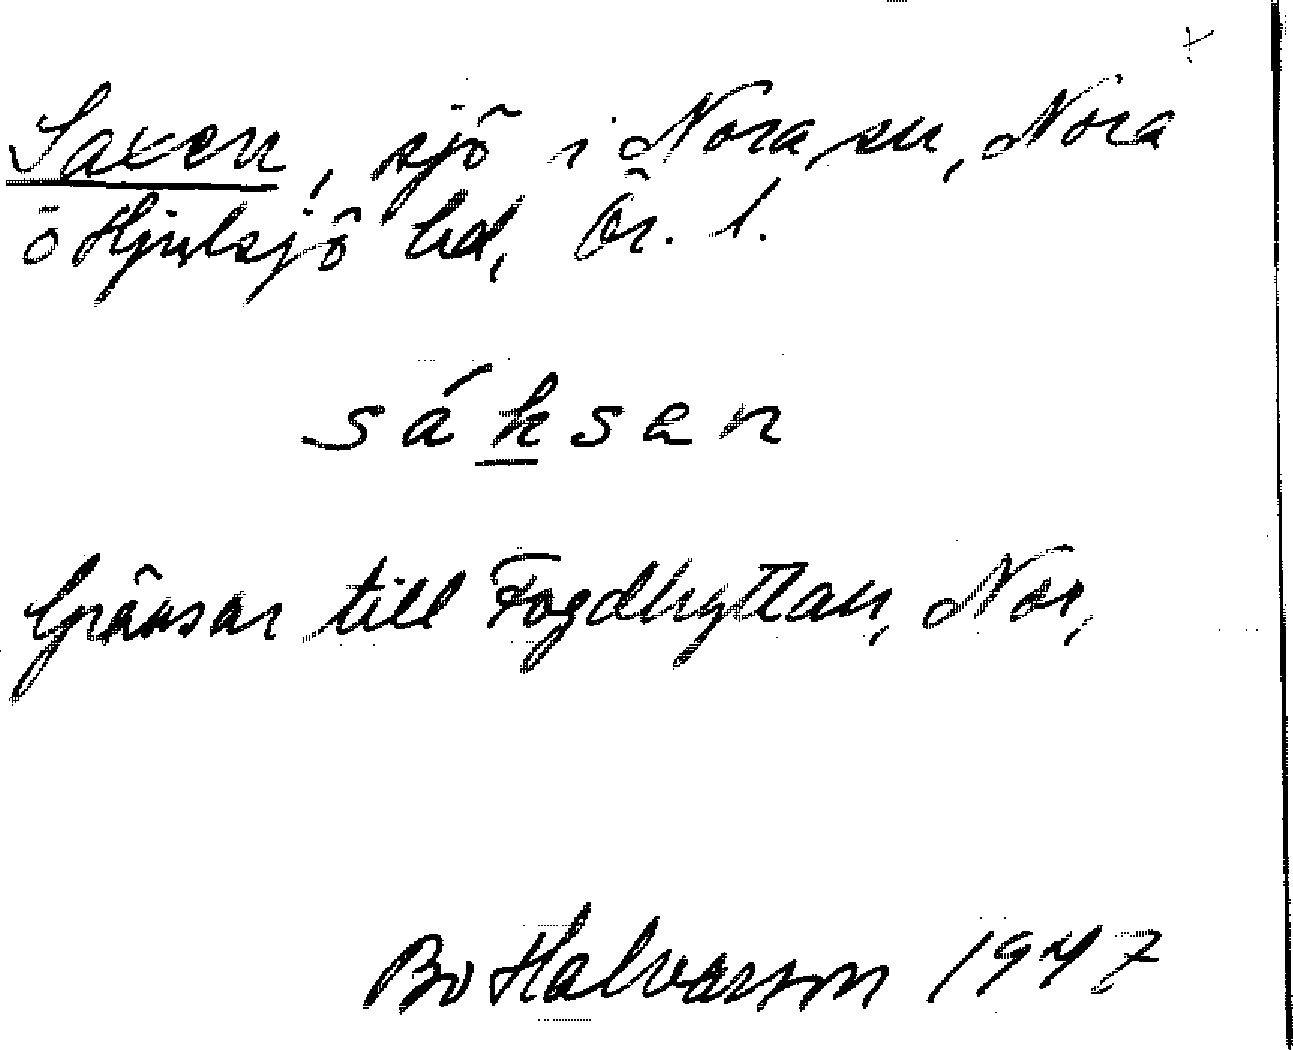 Saxen, sjö i Nora sn, Nora
o Hjulsjö hd, Ör. l.
sáksen
Gränsar till Fogdhyttan, Nor,
Bo Halvarson 1947